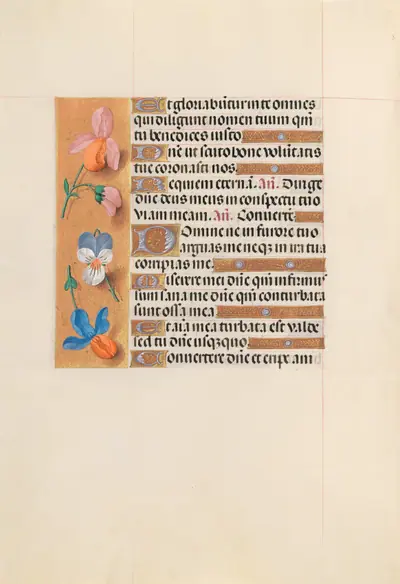 Et gloriabuntur in te omnes
qui diligunt nomen tuum qm̄
tu benedices iusto.
Dn̄e ut scuto bone voluntatis
tue coronasti nos.
Requiem etern̄ā. Añ. Dirige
dn̄e deus meus in conspectu tuo
viam meam. Añ. Convertē.
Domine ne in furore tuo
arguas me neq̄ in ira tua
corripias me.
Miserere mei dn̄e qm̄ infirmus
sum sana me dn̄e qm̄ conturbata
sunt ossa mea
Et aīa mea turbata est valde
sed tu dn̄e usq̄quo.
Convertere dn̄e et eripe am̄